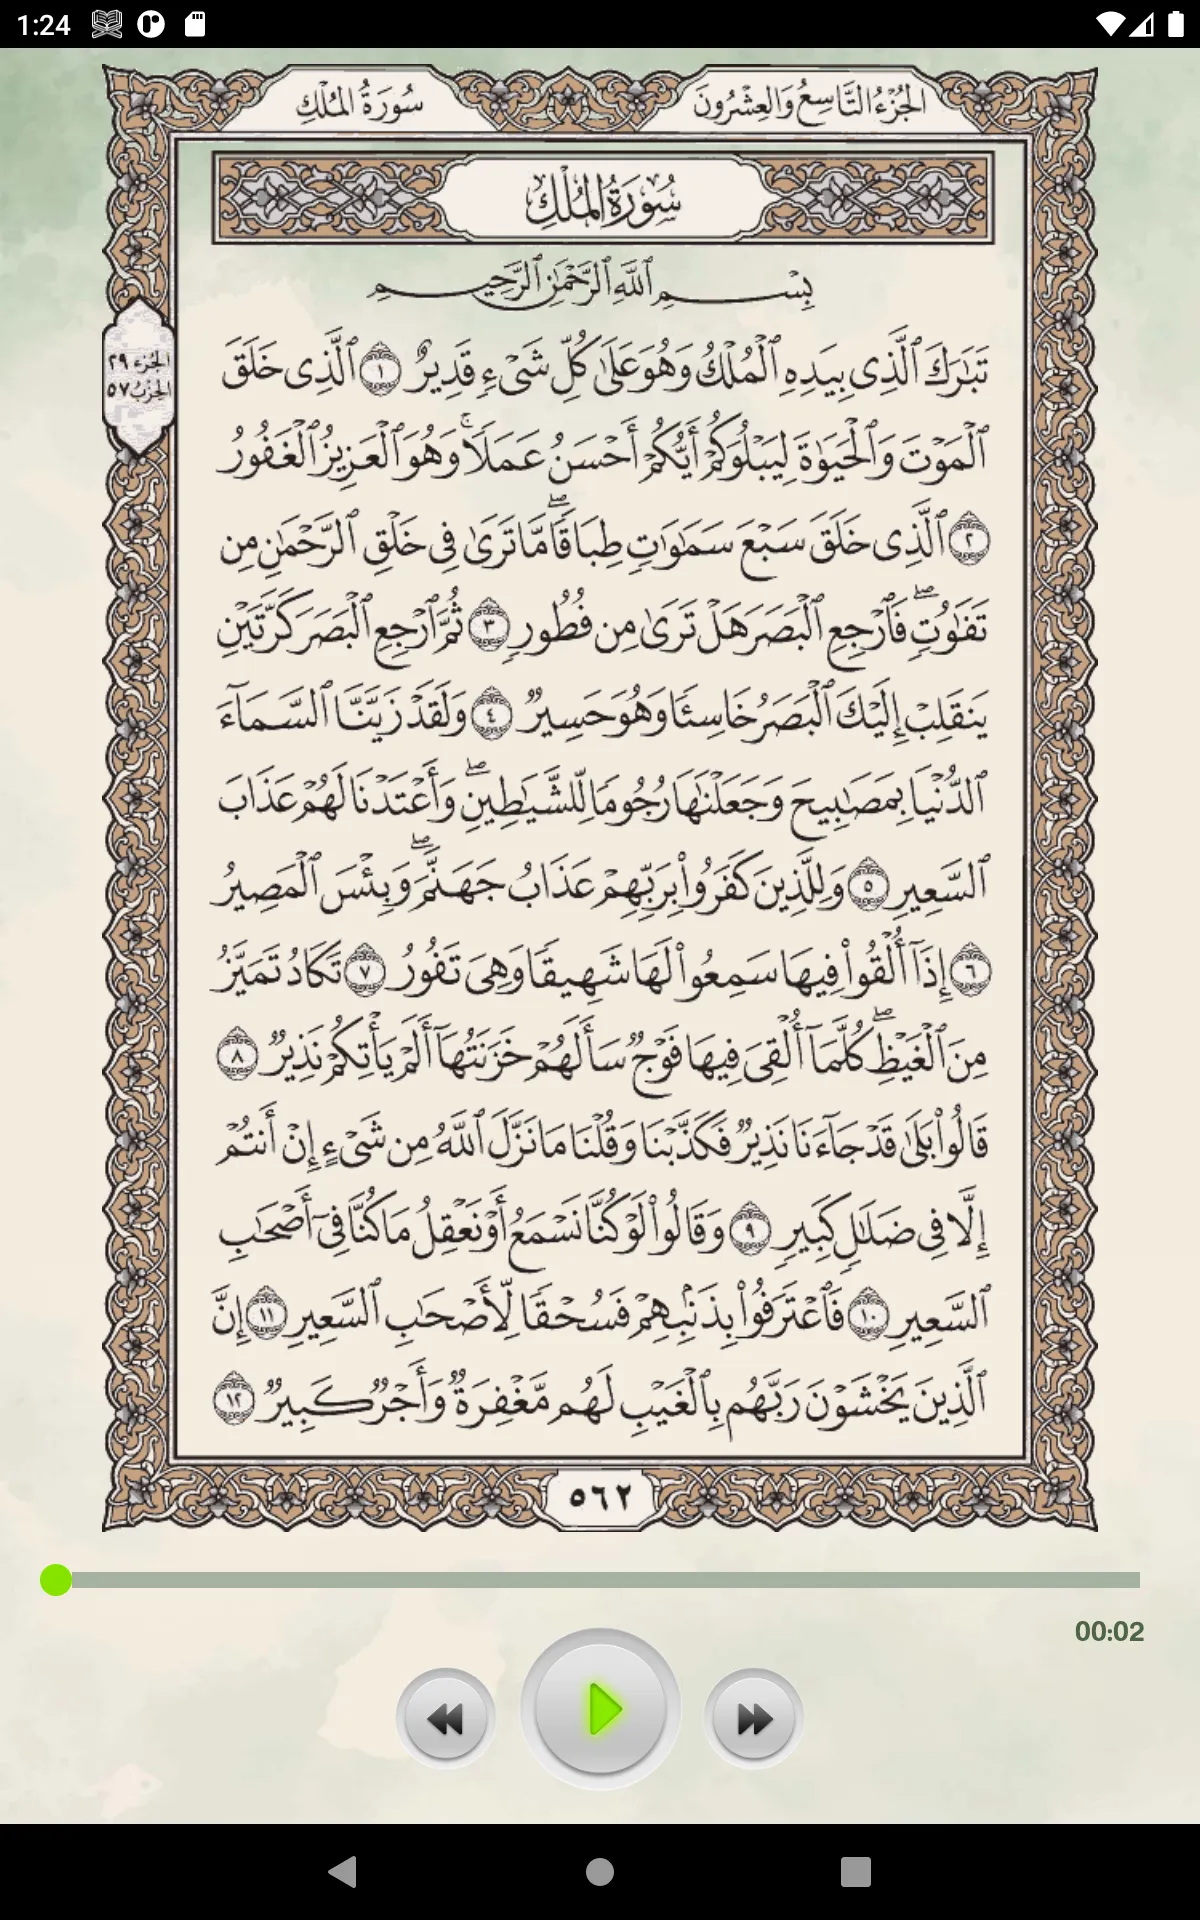 1:24
سُورَةُ المُلْكِ
الجُزْءُ التَّاسِعُ وَالعِشْرُونَ
سُورَةُ المُلْكِ
بِسْمِ ٱللَّهِ ٱلرَّحْمَٰنِ ٱلرَّحِيمِ
الجزء ٢٩
الحزب ٥٧
تَبَٰرَكَ ٱلَّذِى بِيَدِهِ ٱلْمُلْكُ وَهُوَ عَلَىٰ كُلِّ شَىْءٍ قَدِيرٌ ١ ٱلَّذِى خَلَقَ
ٱلْمَوْتَ وَٱلْحَيَوٰةَ لِيَبْلُوَكُمْ أَيُّكُمْ أَحْسَنُ عَمَلًا ۚ وَهُوَ ٱلْعَزِيزُ ٱلْغَفُورُ
٢ ٱلَّذِى خَلَقَ سَبْعَ سَمَٰوَٰتٍ طِبَاقًا ۖ مَّا تَرَىٰ فِى خَلْقِ ٱلرَّحْمَٰنِ مِن
تَفَٰوُتٍ ۖ فَٱرْجِعِ ٱلْبَصَرَ هَلْ تَرَىٰ مِن فُطُورٍ ٣ ثُمَّ ٱرْجِعِ ٱلْبَصَرَ كَرَّتَيْنِ
يَنقَلِبْ إِلَيْكَ ٱلْبَصَرُ خَاسِئًا وَهُوَ حَسِيرٌ ٤ وَلَقَدْ زَيَّنَّا ٱلسَّمَآءَ
ٱلدُّنْيَا بِمَصَٰبِيحَ وَجَعَلْنَٰهَا رُجُومًا لِّلشَّيَٰطِينِ ۖ وَأَعْتَدْنَا لَهُمْ عَذَابَ
ٱلسَّعِيرِ ٥ وَلِلَّذِينَ كَفَرُوا۟ بِرَبِّهِمْ عَذَابُ جَهَنَّمَ ۖ وَبِئْسَ ٱلْمَصِيرُ
٦ إِذَآ أُلْقُوا۟ فِيهَا سَمِعُوا۟ لَهَا شَهِيقًا وَهِىَ تَفُورُ ٧ تَكَادُ تَمَيَّزُ
مِنَ ٱلْغَيْظِ ۖ كُلَّمَآ أُلْقِىَ فِيهَا فَوْجٌ سَأَلَهُمْ خَزَنَتُهَآ أَلَمْ يَأْتِكُمْ نَذِيرٌ ٨
قَالُوا۟ بَلَىٰ قَدْ جَآءَنَا نَذِيرٌ فَكَذَّبْنَا وَقُلْنَا مَا نَزَّلَ ٱللَّهُ مِن شَىْءٍ إِنْ أَنتُمْ
إِلَّا فِى ضَلَٰلٍ كَبِيرٍ ٩ وَقَالُوا۟ لَوْ كُنَّا نَسْمَعُ أَوْ نَعْقِلُ مَا كُنَّا فِىٓ أَصْحَٰبِ
ٱلسَّعِيرِ ١٠ فَٱعْتَرَفُوا۟ بِذَنۢبِهِمْ فَسُحْقًا لِّأَصْحَٰبِ ٱلسَّعِيرِ ١١ إِنَّ
ٱلَّذِينَ يَخْشَوْنَ رَبَّهُم بِٱلْغَيْبِ لَهُم مَّغْفِرَةٌ وَأَجْرٌ كَبِيرٌ ١٢
٥٦٢
00:02